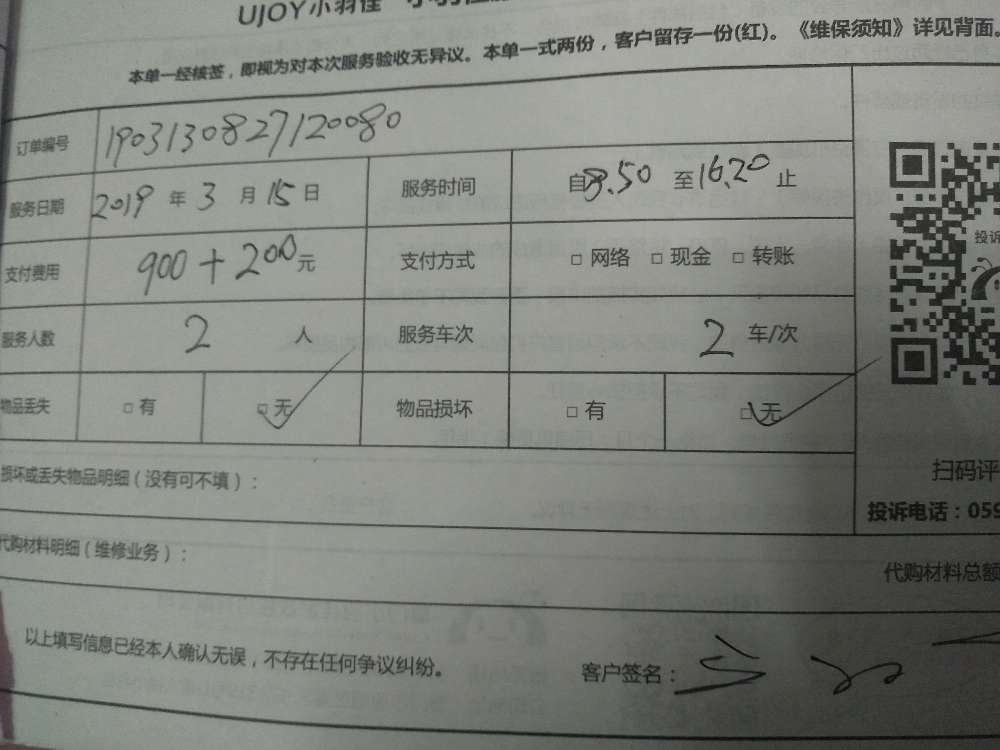 UJOY小羽佳
本单一经核签，即视为对本次服务验收无异议。本单一式两份，客户留存一份(红)。《维保须知》详见背面。
订单编号 1903130827120080
服务日期 2019 年 3 月 15 日 服务时间 自8.50 至16.20 止
支付费用 900+200元 支付方式 □ 网络 □ 现金 □ 转账
服务人数 2 人 服务车次 2 车/次
物品丢失 □ 有 □ 无 物品损坏 □ 有 □ 无
投诉
扫码评
损坏或丢失物品明细（没有可不填）：
投诉电话：059
代购材料明细（维修业务）：
代购材料总额
以上填写信息已经本人确认无误，不存在任何争议纠纷。 客户签名：